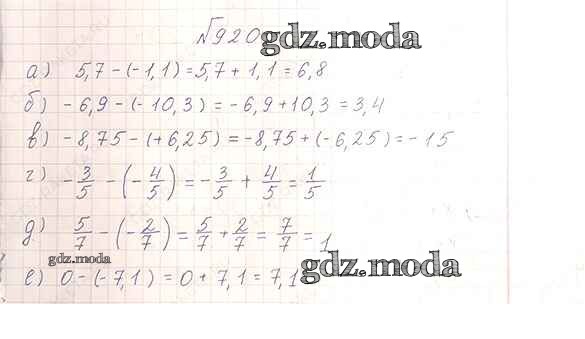 №920 gdz.moda
а) 5,7 - (-1,1) = 5,7 + 1,1 = 6,8
б) -6,9 - (-10,3) = -6,9 + 10,3 = 3,4
в) -8,75 - (+6,25) = -8,75 + (-6,25) = -15
г) -3/5 - (-4/5) = -3/5 + 4/5 = 1/5
д) 5/7 - (-2/7) = 5/7 + 2/7 = 7/7 = 1
gdz.moda
е) 0 - (-7,1) = 0 + 7,1 = 7,1 gdz.moda